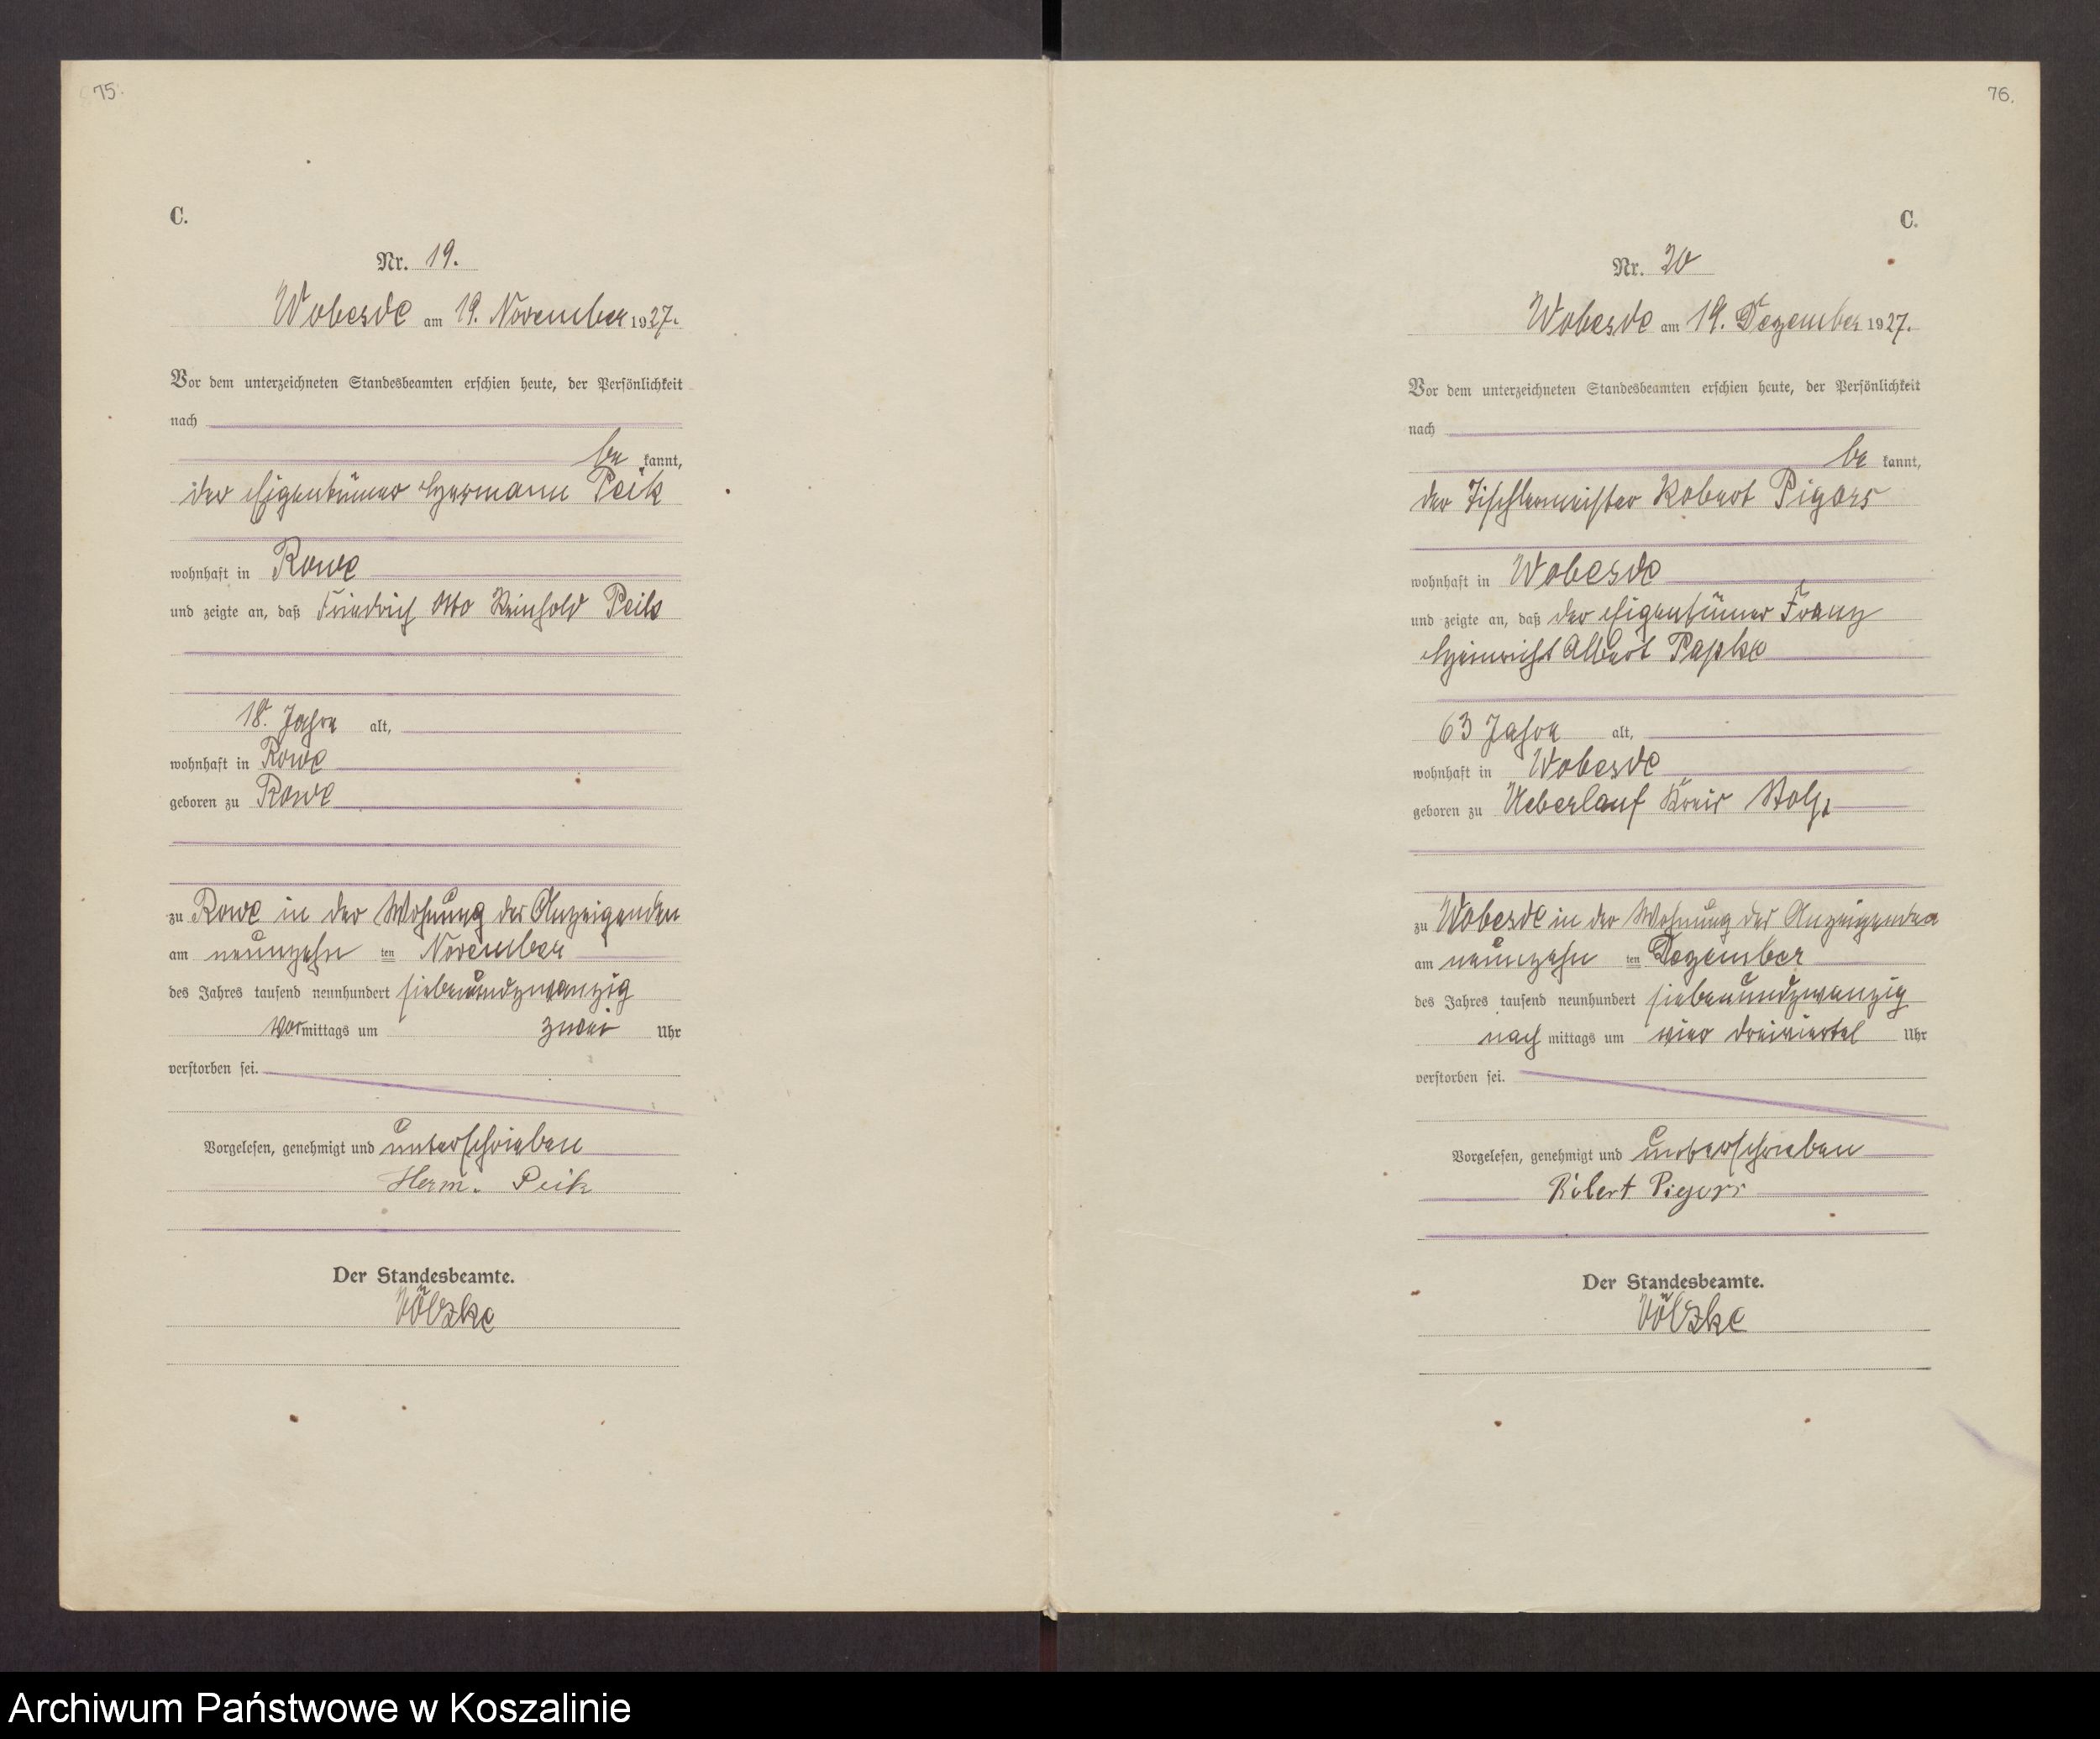 75.
C.
Nr. 19.
Wobesde am 19. November 1927.
Vor dem unterzeichneten Standesbeamten erschien heute, der Persönlichkeit
nach
be kannt,
der Eigentümer Hermann Peik
wohnhaft in Rowe
und zeigte an, daß Friedrich Otto Reinhold Peik
18 Jahre alt,
wohnhaft in Rowe
geboren zu Rowe
zu Rowe in der Wohnung des Anzeigenden
am neunzehn ten November
des Jahres tausend neunhundert siebenundzwanzig
Vor mittags um zwei Uhr
verstorben sei.
Vorgelesen, genehmigt und unterschrieben
Herm. Peik
Der Standesbeamte.
Völzke
76.
C.
Nr. 20
Wobesde am 19. Dezember 1927.
Vor dem unterzeichneten Standesbeamten erschien heute, der Persönlichkeit
nach
be kannt,
der Tischlermeister Robert Pigors
wohnhaft in Wobesde
und zeigte an, daß der Eigentümer Franz
Heinrich Albert Papke
63 Jahre alt,
wohnhaft in Wobesde
geboren zu Ueberlauf Kreis Stolp
zu Wobesde in der Wohnung des Anzeigenden
am neunzehn ten Dezember
des Jahres tausend neunhundert siebenundzwanzig
nach mittags um vier dreiviertel Uhr
verstorben sei.
Vorgelesen, genehmigt und unterschrieben
Robert Pigors
Der Standesbeamte.
Völzke
Archiwum Państwowe w Koszalinie